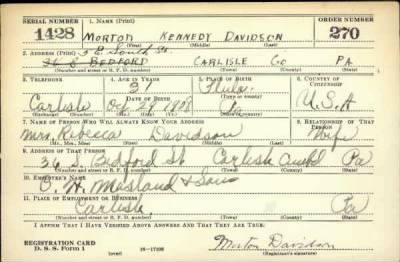 SERIAL NUMBER 1. NAME (Print) ORDER NUMBER
1428 MORTON KENNEDY DAVIDSON 270
(First) (Middle) (Last)
2. ADDRESS (Print) 5 E South St.
36 S BEDFORD CARLISLE Co PA
(Number and street or R. F. D. number) (Town) (County) (State)
3. TELEPHONE 4. AGE IN YEARS 5. PLACE OF BIRTH 6. COUNTRY OF CITIZENSHIP
31 Phila.
Carlisle DATE OF BIRTH (Town or county)
Oct 28 1908 Pa U.S.A
(Exchange) (Number) (Mo.) (Day) (Yr.) (State or country)
7. NAME OF PERSON WHO WILL ALWAYS KNOW YOUR ADDRESS 8. RELATIONSHIP OF THAT PERSON
Mrs. Rebecca Davidson Wife
(Mr., Mrs., Miss) (First) (Middle) (Last)
9. ADDRESS OF THAT PERSON
36 S. Bedford St Carlisle Cumbl Pa
(Number and street or R. F. D. number) (Town) (County) (State)
10. EMPLOYER'S NAME
C. H. Masland & Sons
11. PLACE OF EMPLOYMENT OR BUSINESS
Carlisle Pa
(Number and street or R. F. D. number) (Town) (County) (State)
I AFFIRM THAT I HAVE VERIFIED ABOVE ANSWERS AND THAT THEY ARE TRUE.
REGISTRATION CARD
D. S. S. Form 1 (over) Morton Davidson
(Registrant's signature)